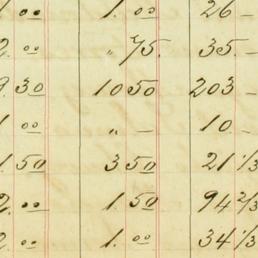 1.00 1.00 26 –
2.00 „ 75. 35. –
9.30 10 50 203 –
1 00 „ – 10. –
1.50 3 50 21 1/3
2.00 1. 50 94 2/3
2.00 1.00 34 1/3